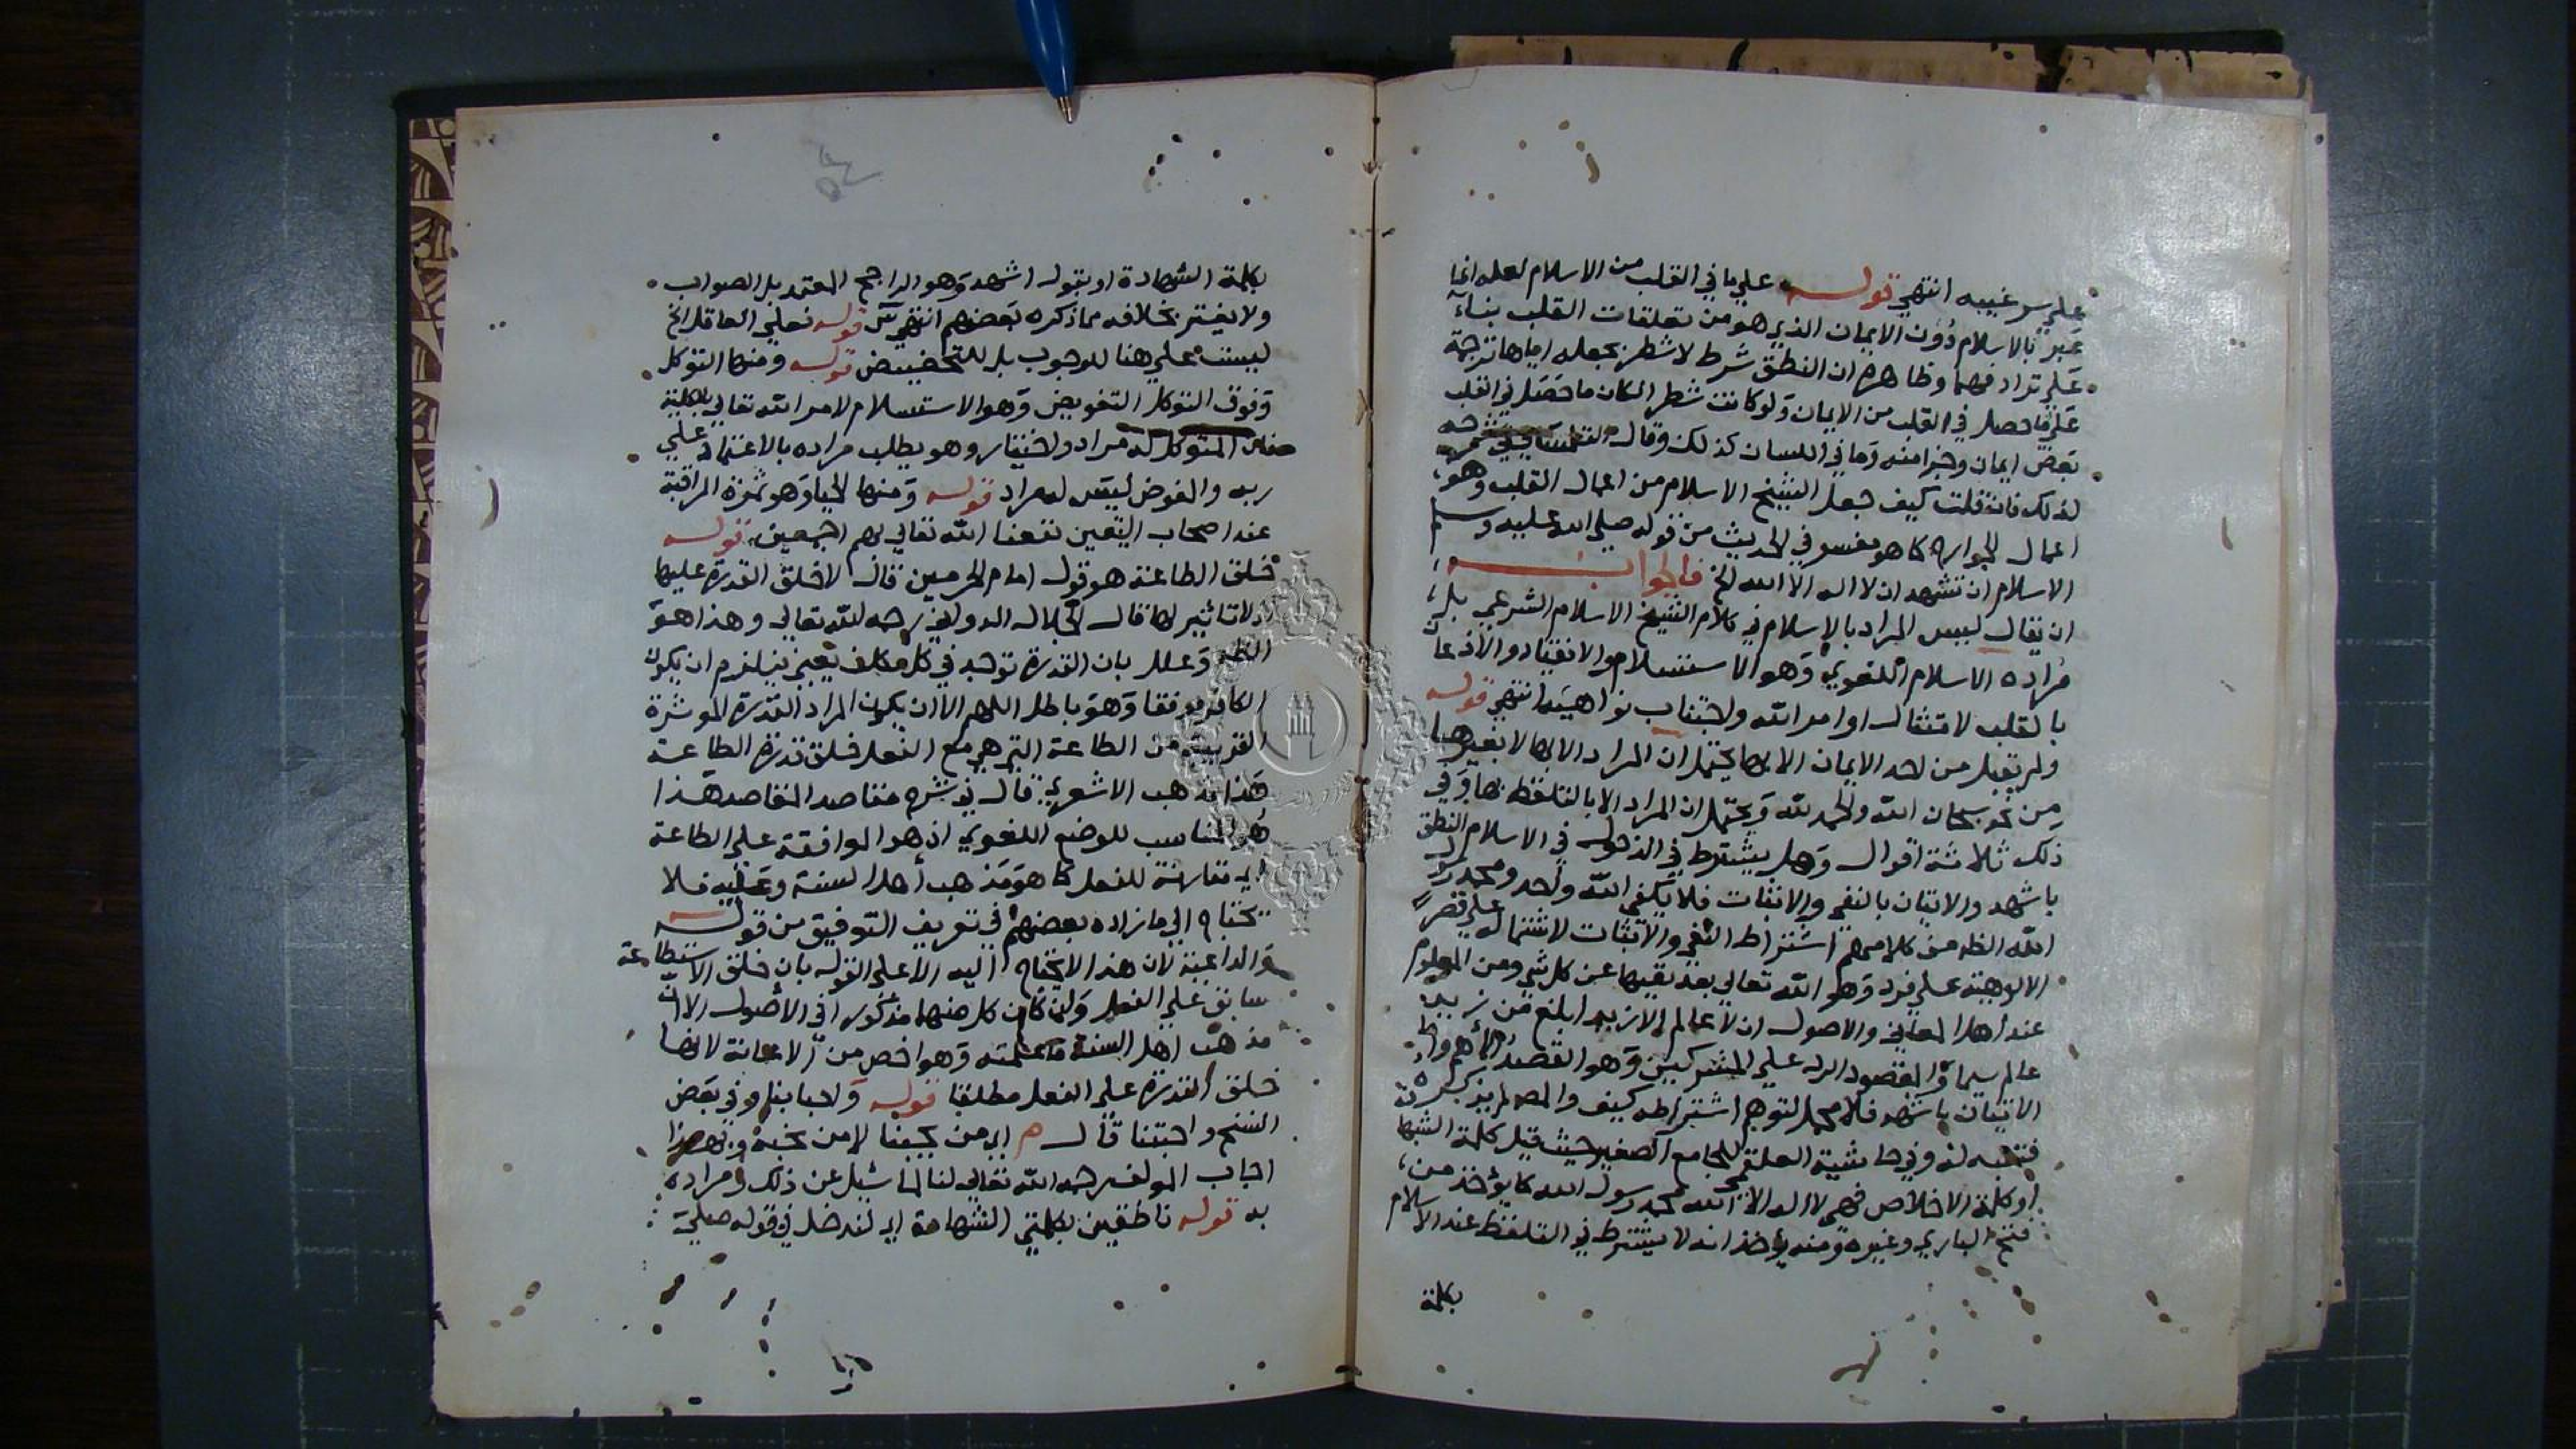 على سر غيبه انتهى قوله على ما في القلب من الاسلام لعله انما
عبر بالاسلام دون الايمان الذي هو من تعلقات القلب بناء
على ترادفهما وظاهره ان النطق شرط لا شطر بجعله اياها ترجمة
على ما حصل في القلب من الايمان ولو كانت شطرا لكان ما حصل في القلب
بعض ايمان وجزا منه وما في اللسان كذلك وقال
لذلك فان قلت كيف جعل الشيخ الاسلام من اعمال القلب وهو
اعمال الجوارح كما هو مفسر في الحديث من قوله صلى الله عليه وسلم
الاسلام ان تشهد ان لا اله الا الله الخ فالجواب
ان يقال ليس المراد بالاسلام في كلام الشيخ الاسلام الشرعي بل
مراده الاسلام اللغوي وهو الاستسلام والانقياد والاذعان
بالقلب لامتثال اوامر الله واجتناب نواهيه انتهى قوله
ولم يقبل من احد الايمان الا بها يحتمل ان المراد الا بها لا بغيرها
من نحو سبحان الله والحمد لله ويحتمل ان المراد الا بالتلفظ بها وفي
ذلك ثلاثة اقوال وهل يشترط في الدخول في الاسلام النطق
باشهد والاتيان بالنفي والاثبات فلا يكفي الله واحد ومحمد رسول
الله الظ من كلامهم اشتراط النفي والاثبات لاشتماله على قصر
الالوهية على فرد وهو الله تعالى بعد نفيها عن كل شي ومن المعلوم
عند اهل المعاني والاصول ان لا عالم الا زيد ابلغ من زيد
عالم سيما والمقصود الرد على المشركين وهو القصد الاهم واما
الاتيان باشهد فلا محل لتوهم اشتراطه كيف والمص لم يذكره
فتنبه له وفي حاشية العلقمي للجامع الصغير حيث قيل كلمة الشهادة
او كلمة الاخلاص فهي لا اله الا الله محمد رسول الله كما يؤخذ من
فتح الباري وغيره ومنه يؤخذ انه لا يشترط في التلفظ عند الاسلام
بكلمة
بكلمة الشهادة او يقول اشهد وهو الراجح المعتمد بل الصواب
ولا يغتر بخلافه مما ذكره بعضهم انتهى قوله فعلى العاقل الخ
ليست على هنا للوجوب بل للتحضيض قوله ومنها التوكل
وفوق التوكل التفويض وهو الاستسلام لامر الله تعالى بالكلية
فان المتوكل له مراد واختيار وهو يطلب مراده بالاعتماد على
ربه والمفوض ليس له مراد قوله ومنها الحيا وهو ثمرة المراقبة
عند اصحاب اليقين نفعنا الله تعالى بهم اجمعين قوله
خلق الطاعة هو قول امام الحرمين قال لا خلق القدرة عليها
اذ لا تاثير لها قال الجلال الدواني رحمه الله تعالى وهذا هو
الظ وعلل بان القدرة توجد في كل مكلف فيلزم ان يكون
الكافر موفقا وهو باطل اللهم الا ان يكون المراد القدرة الموثرة
القريبة من الطاعة التي هي مع الفعل فخلق قدرة الطاعة
هذا مذهب الاشعري قال في شرح مقاصد المقاصد هذا
هو المناسب للوضع اللغوي اذ هو الموافقة على الطاعة
اي مقارنة للفعل كما هو مذهب اهل السنة وعليه فلا
يحتاج الى ما زاده بعضهم في تعريف التوفيق من قوله
والداعية لان هذا لا يحتاج اليه الا على القول بان خلق الاستطاعة
سابق على الفعل وان كان كل منهما مذكورا في الاصول الا ان
مذهب اهل السنة ما علمته وهو اخص من الاعانة لانها
خلق القدرة على الفعل مطلقا قوله واحبابنا وفي بعض
النسخ واحبتنا قال م اي من يحبنا لا من نحبه وبهذا
اجاب المولف رحمه الله تعالى لنا لما سئل عن ذلك ومراده
به قوله ناطقين بكلمتي الشهادة اي لندخل في قوله صلى